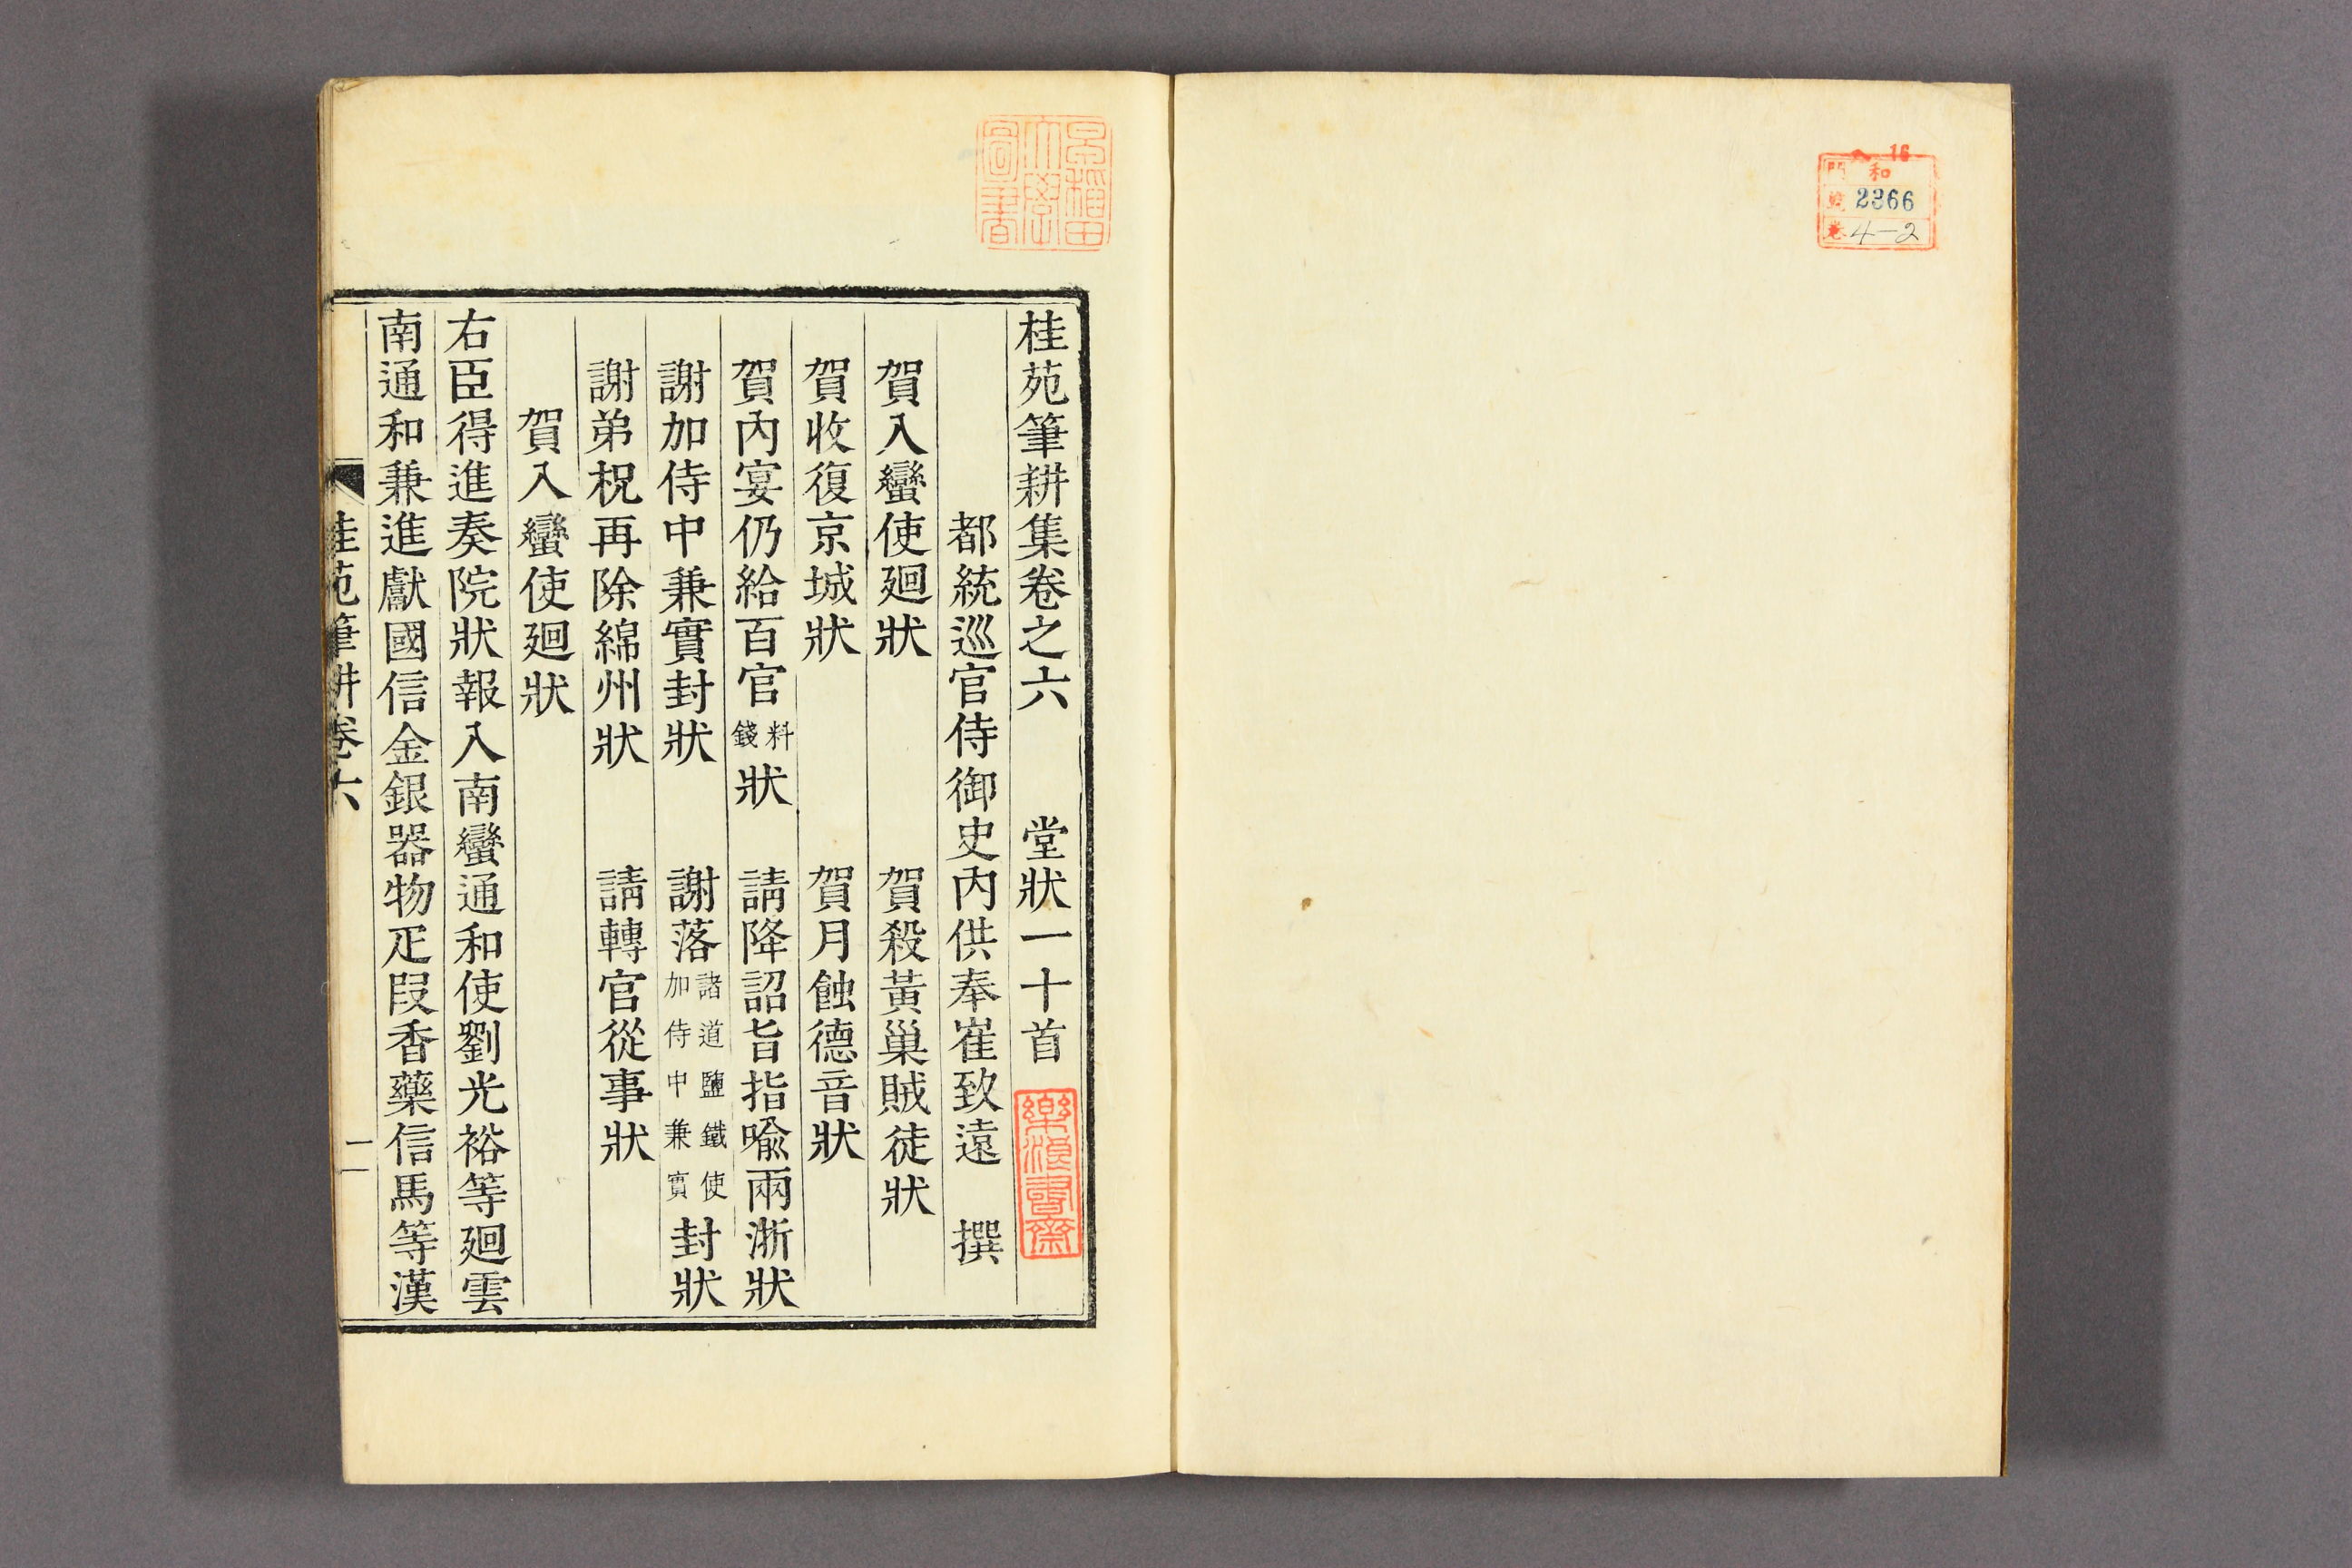 和
2366
4-2
早稲田
大學
圖書
桂苑筆耕集卷之六 堂狀一十首
都統巡官侍御史內供奉崔致遠 撰
賀入蠻使廻狀 賀殺黃巢賊徒狀
賀收復京城狀 賀月蝕德音狀
賀內宴仍給百官料錢狀 請降詔旨指喩兩浙狀
謝加侍中兼實封狀 謝落諸道鹽鐵使加侍中兼實封狀
謝弟柷再除綿州狀 請轉官從事狀
賀入蠻使廻狀
右臣得進奏院狀報入南蠻通和使劉光裕等廻雲
南通和兼進獻國信金銀器物疋段香藥信馬等漢
桂苑筆耕卷六 一